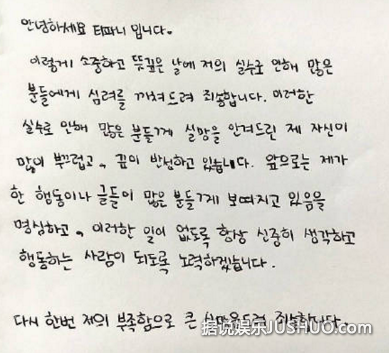 안녕하세요 티파니 입니다.
이렇게 소중하고 뜻깊은 날에 저의 실수로 인해 많은
분들에게 심려를 끼쳐드려 죄송합니다. 이러한
실수로 인해 많은 분들께 실망을 안겨드린 제 자신이
많이 부끄럽고, 깊이 반성하고 있습니다. 앞으로는 제가
한 행동이나 글들이 많은 분들께 보여지고 있음을
명심하고, 이러한 일이 없도록 항상 신중히 생각하고
행동하는 사람이 되도록 노력하겠습니다.
다시 한번 저의 부족함으로 큰 실망을드려 죄송합니다.
据说娱乐JUSHUO.com